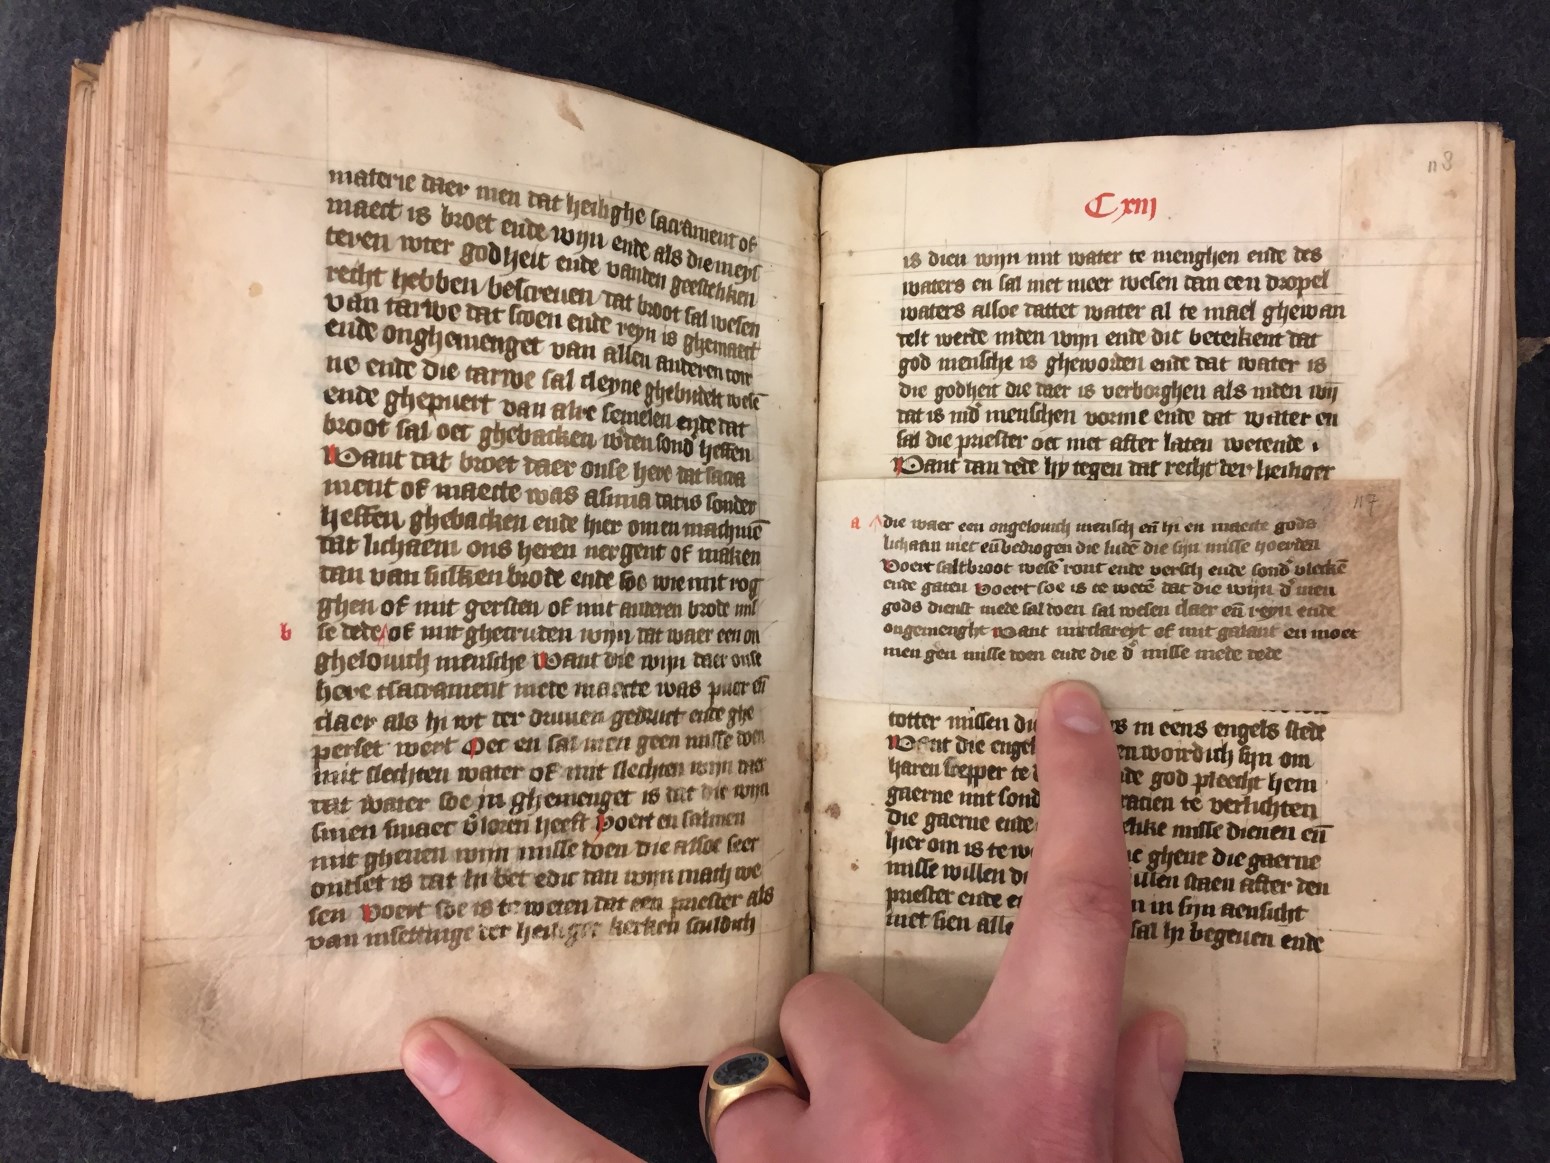 materie daer men dat heilighe sacrament of
maect is broet ende wijn ende als die meys
teren wter godheit ende vanden geestliken
recht hebben bescreuen dat broot sal wesen
van tarwe dat scoen ende reyn is ghemaect
ende onghemenget van allen anderen cor
ne ende die tarwe sal cleyne ghebudelt wesē
ende ghepuert van alre semelen ende dat
broot sal oec ghebacken wdensond heffen
Want dat broet daer onse here dat sacra
ment of maecte was asima dat is sonder
heffen ghebacken ende hier om en mach mē
dat lichaem ons heren nergent of maken
dan van sulken brode ende soe wie mit rog
ghen of mit gersten of mit anderen brode mis
b se dede of mit ghecruden wijn dat waer een on
ghelouich mensche Want die wijn daer onse
here tsacrament mede maecte was puer eñ
claer als hi wt der druuen gedruct ende ghe
perset wert Oec en sal men geen misse doen
mit slechten water of mit slechten wijn daer
dat water soe in ghemenget is dat die wijn
sinen smaec vloren heeft Voert en salmen
mit gheuen wijn misse doen die alsoe seer
ontset is dat hi bet edic dan wijn mach we
sen Voert soe is te weten dat een priester als
van insettinge der heiliger kerken sculdich
118
Cxiij
is dien wijn mit water te menghen ende des
waters en sal niet meer wesen dan een dropel
waters alsoe dattet water al te mael ghewan
delt werde inden wijn ende dit beteikent dat
god mensche is gheworden ende dat water is
die godheit die daer is verborghen als inden wij
dat is ind menschen vorme ende dat water en
sal die priester oec niet after laten wetende
Want dan dede hy tegen dat recht der heiliger
117
a die waer een ongelouich mensch eñ hi en maecte gods
lichaam niet eñ bedrogen die ludē die sijn misse hoerden
Voert saltbroot wesē ront ende versch ende sond vlecken
ende gaten Voert soe is te wetē dat die wijn d men
gods dienst mede sal doen sal wesen claer eñ reyn ende
ongemenght Want mit clareyt of mit galant en moet
men gen misse doen ende die d misse mede dede
totter missen in eens engels stede
Want die engel woirdich sijn om
haren scepper te god pleecht hem
gaerne mit sond gracien te verlichten
die gaerne ende misse dienen eñ
hier om is te gheue die gaerne
misse willen willen staen after den
priester ende in sijn aensicht
niet sien sal hi begeuen ende